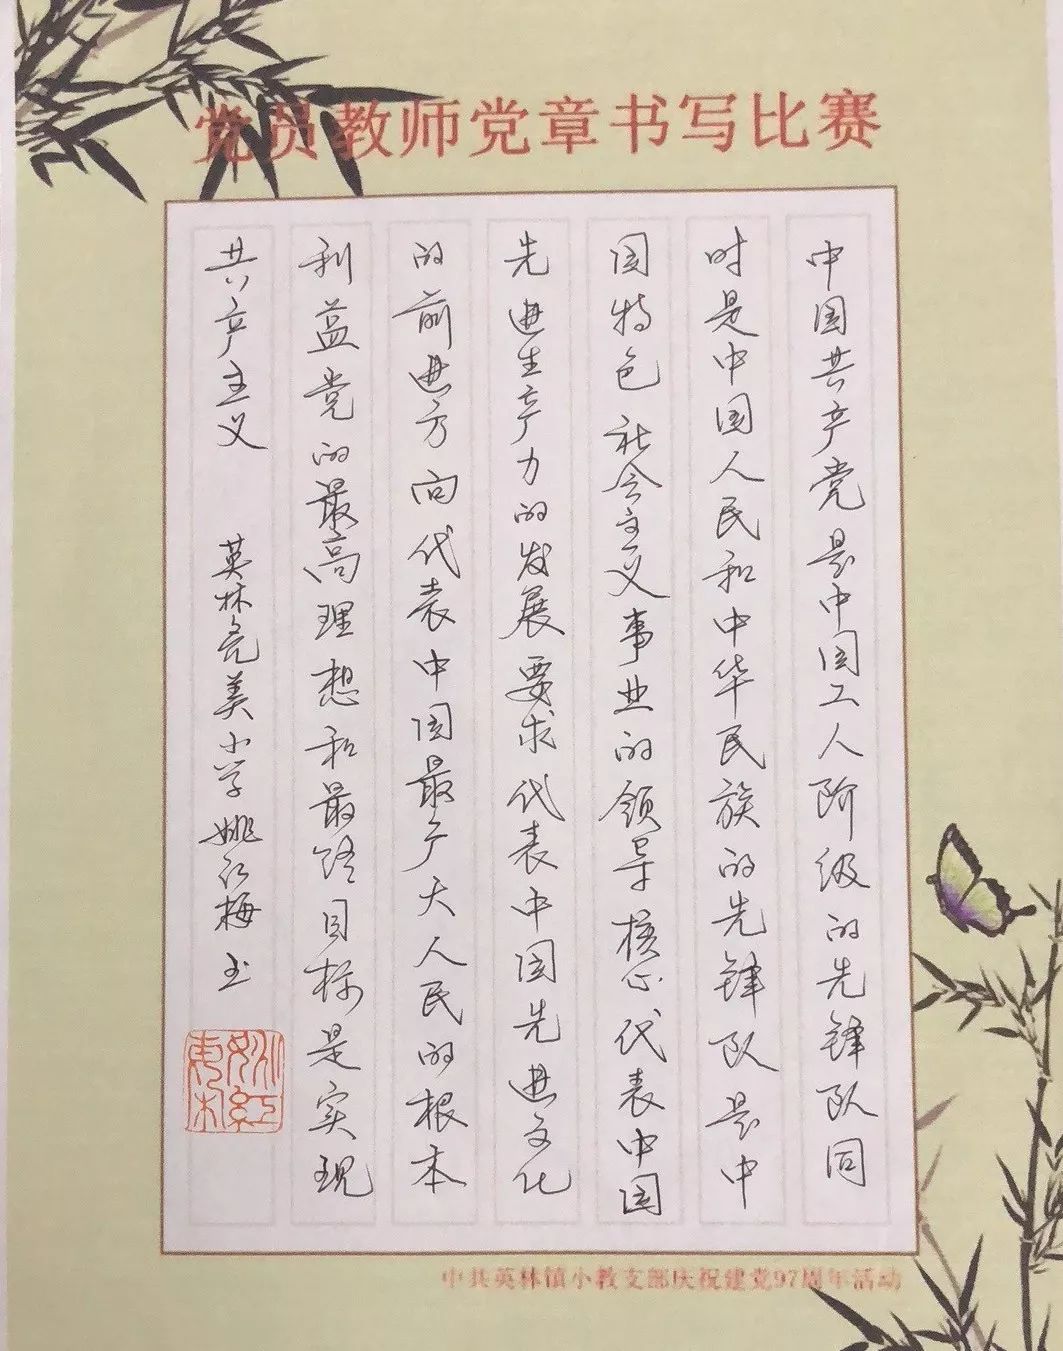 党员教师党章书写比赛
中国共产党是中国工人阶级的先锋队同
时是中国人民和中华民族的先锋队是中
国特色社会主义事业的领导核心代表中国
先进生产力的发展要求代表中国先进文化
的前进方向代表中国最广大人民的根本
利益党的最高理想和最终目标是实现
共产主义 英林尭美小学姚红梅书
姚红
中共英林镇小教支部庆祝建党97周年活动